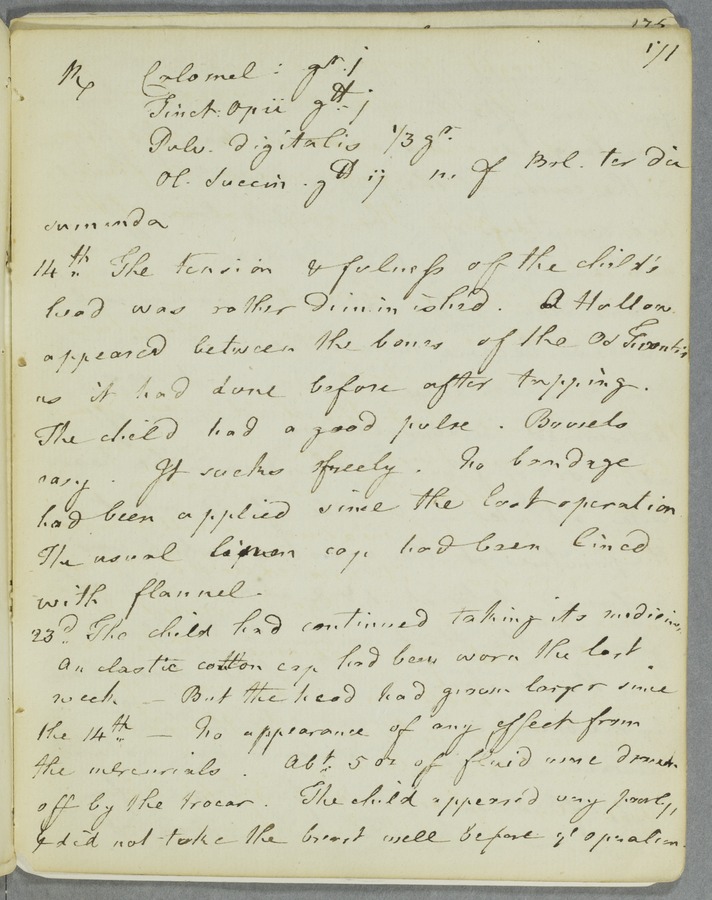 175
171
Rx Calomel: gr. j
Tinct: Opii gtt. j
Pulv. digitalis 1/3 gr.
Ol. Succin. gtt ij m. f Bol. ter die
sumenda
14th The tension & fulness of the child's
head was rather diminished. A Hollow
appeared between the bones of the Os Frontis
as it had done before after tapping.
The child had a good pulse. Bowels
easy. It sucks freely. No bandage
had been applied since the last operation
The usual linnen cap had been lined
with flannel.
23d The child had continued taking its medicine.
An elastic cotton cap had been worn the last
week — But the head had grown larger since
the 14th — No appearance of any effect from
the mercurials. Abt. 5 oz of fluid were drawn
off by the trocar. The child appeared very poorly,
& did not take the breast well before ye operation.